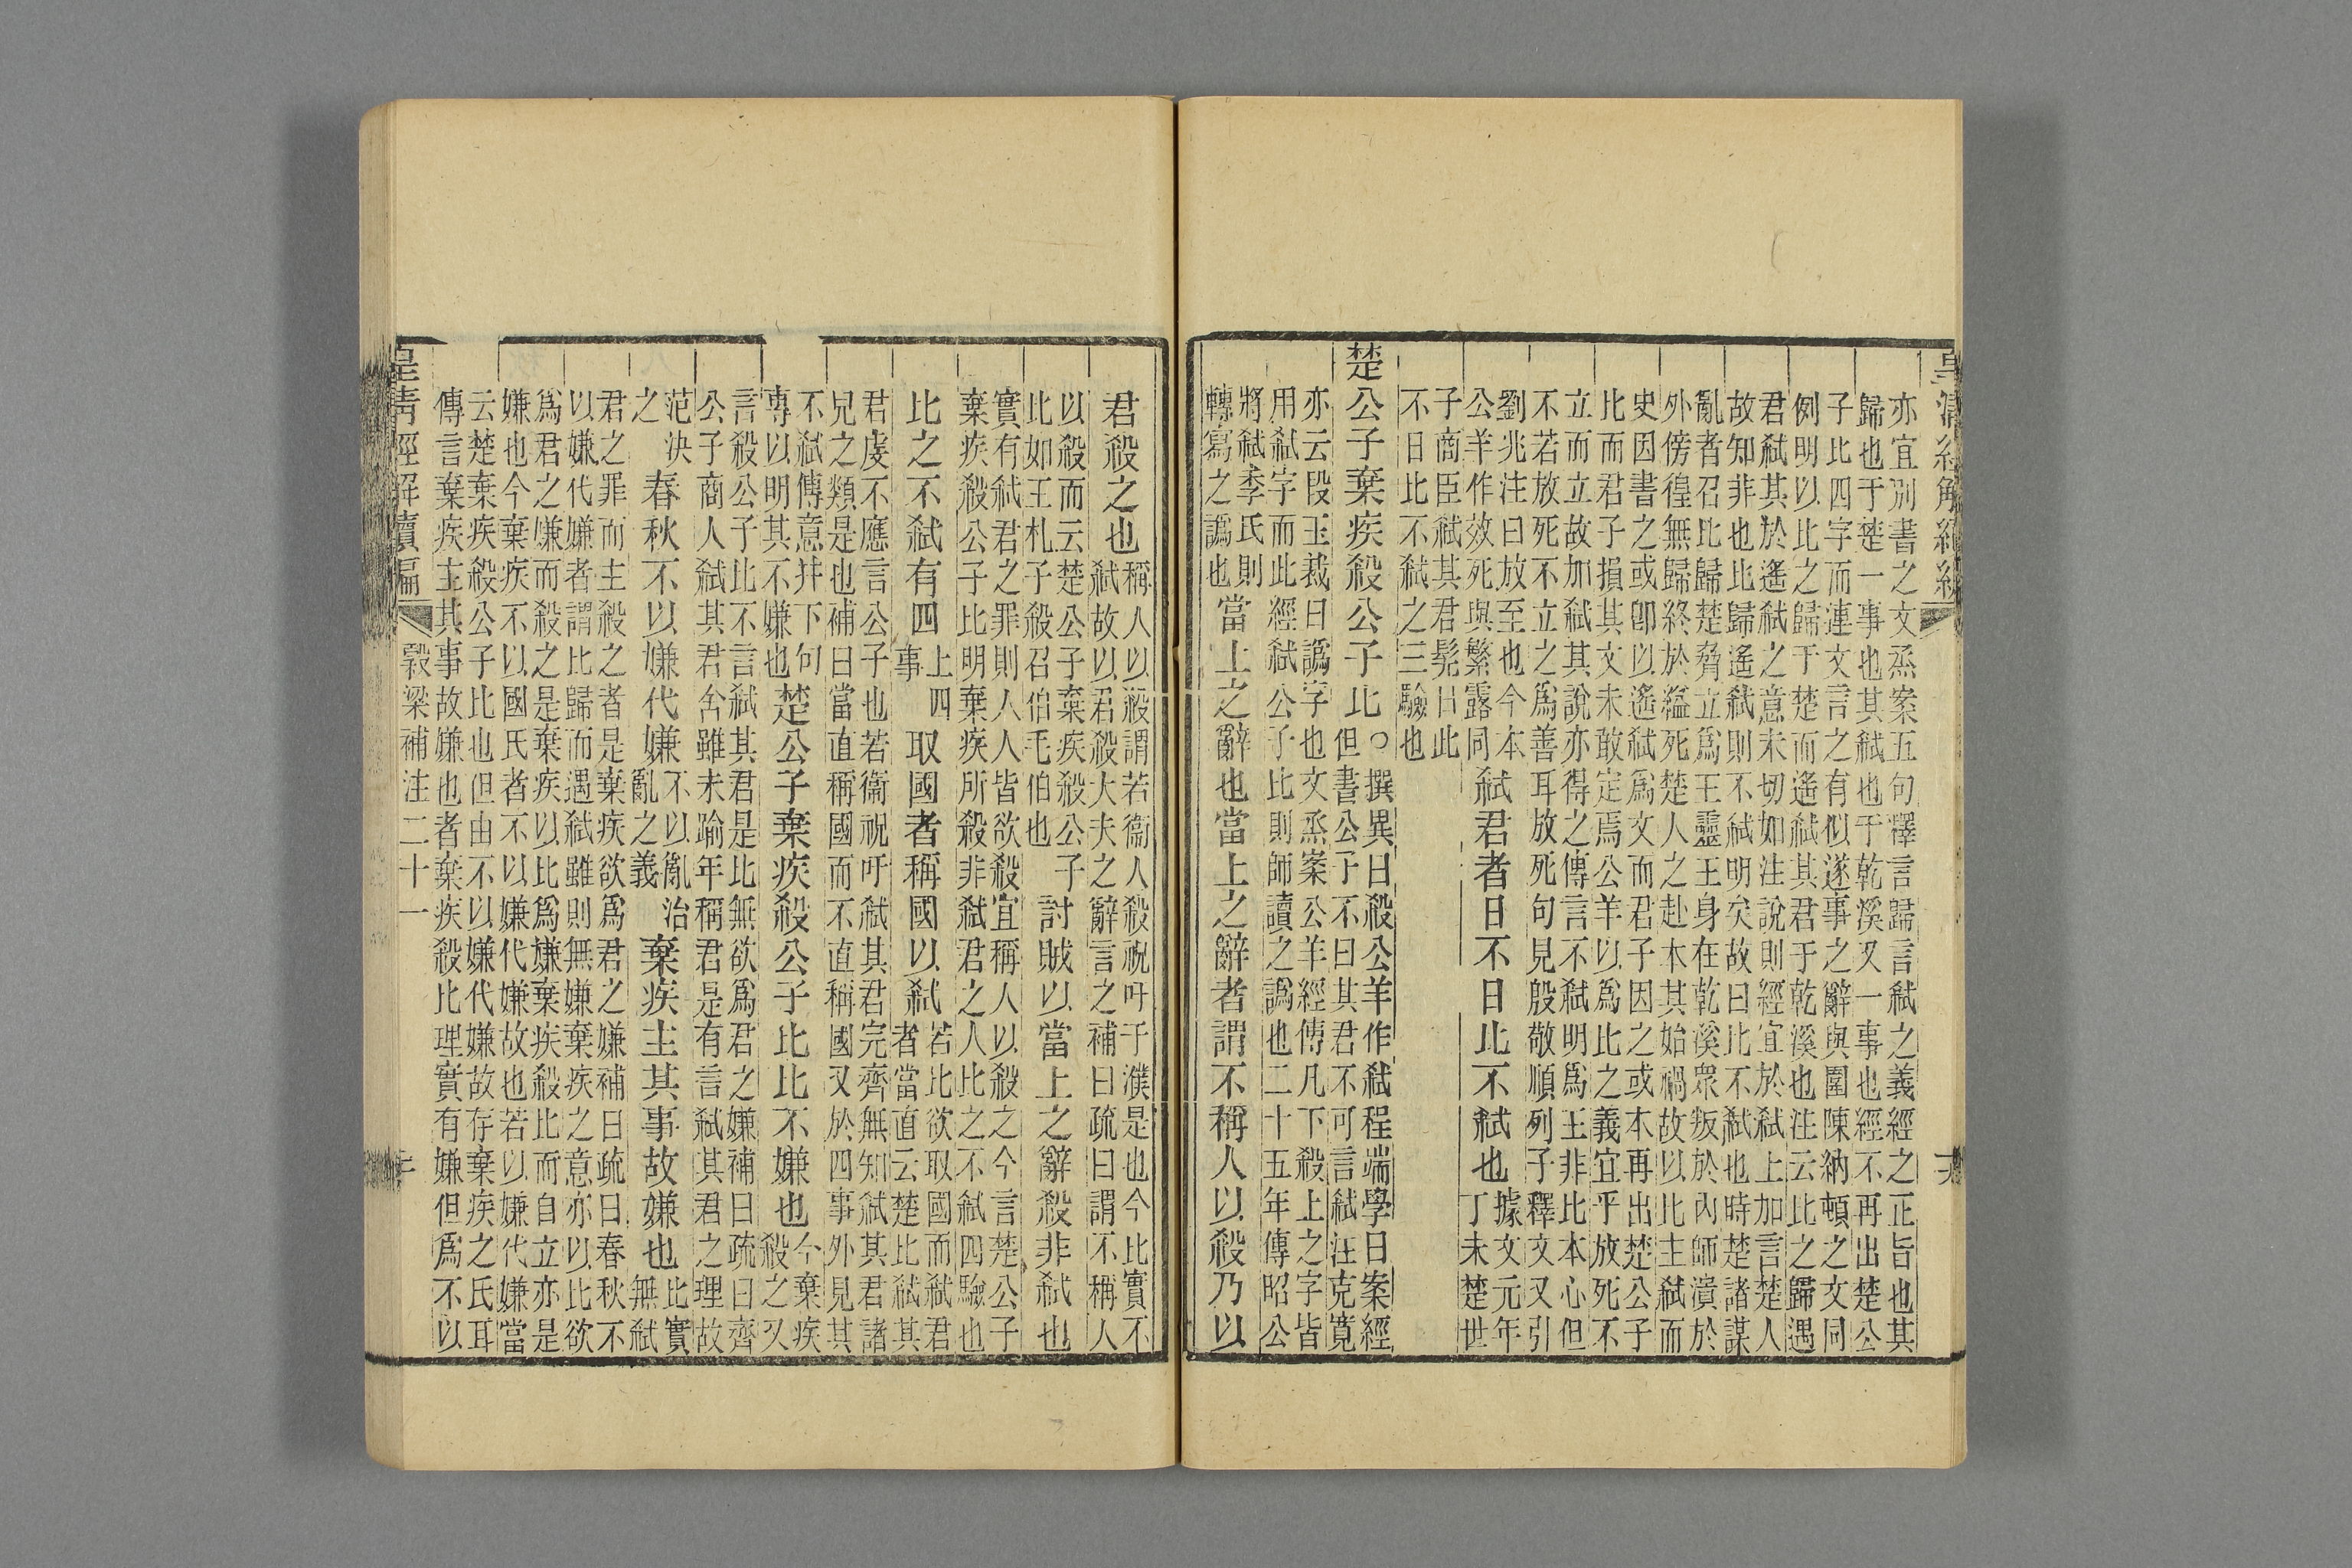 亦宜別書之文烝案五句釋言歸言弑之義經之正旨也其
歸也于楚一事也其弑也于乾溪又一事也經不再出楚公
子比四字而連文言之有似遂事之辭與圍陳納頓之文同
例明以比之歸于楚而遙弑其君于乾溪也注云比之歸遇
君弑其於遙弑之意未切如注說則經宜於弑上加言楚人
故知非也比歸遙弑則不弑明矣故曰比不弑也時楚諸謀
亂者召比歸楚脅立爲王靈王身在乾溪眾叛於內師潰於
外傍徨無歸終於縊死楚人之赴本其始禍故以比主弑而
史因書之或卽以遙弑爲文而君子因之或本再出楚公子
比而君子損其文未敢定焉公羊以爲比之義宜乎放死不
立而立故加弑其說亦得之傳言不弑明爲王非比本心但
不若放死不立之爲善耳放死句見殷敬順列子釋文又引
劉兆注曰放至也今本
公羊作效死與繁露同
弑君者日不日比不弑也
據文元年
丁未楚世
子商臣弑其君髡日此
不日比不弑之三驗也
楚公子棄疾殺公子比〇
撰異曰殺公羊作弑程端學曰案經
但書公子不曰其君不可言弑汪克寬
亦云段玉裁曰譌字也文烝案公羊經傳凡下殺上之字皆
用弑字而此經弑公子比則師讀之譌也二十五年傳昭公
將弑季氏則
轉寫之譌也
當上之辭也當上之辭者謂不稱人以殺乃以
君殺之也
稱人以殺謂若衞人殺祝吁于濮是也今比實不
弑故以君殺大夫之辭言之補曰疏曰謂不稱人
以殺而云楚公子棄疾殺公子
比如王札子殺召伯毛伯也
討賊以當上之辭殺非弑也
實有弑君之罪則人人皆欲殺宜稱人以殺之今言楚公子
棄疾殺公子比明棄疾所殺非弑君之人比之不弑四驗也
比之不弑有四
上四
事
取國者稱國以弑
若比欲取國而弑君
者當直云楚比弑其
君虔不應言公子也若衞祝吁弑其君完齊無知弑其君諸
兒之類是也補曰當直稱國而不直稱國又於四事外見其
不弑傳意幷下句
專以明其不嫌也
楚公子棄疾殺公子比比不嫌也
今棄疾
殺之又
言殺公子比不言弑其君是比無欲爲君之嫌補曰疏曰齊
公子商人弑其君舍雖未踰年稱君是有言弑其君之理故
范決
之
春秋不以嫌代嫌
不以亂治
亂之義
棄疾主其事故嫌也
比實
無弑
君之罪而主殺之者是棄疾欲爲君之嫌補曰疏曰春秋不
以嫌代嫌者謂比歸而遇弑雖則無嫌棄疾之意亦以比欲
爲君之嫌而殺之是棄疾以比爲嫌棄疾殺比而自立亦是
嫌也今棄疾不以國氏者不以嫌代嫌故也若以嫌代嫌當
云楚棄疾殺公子比也但由不以嫌代嫌故存棄疾之氏耳
傳言棄疾主其事故嫌也者棄疾殺比理實有嫌但爲不以
穀梁補注二十一